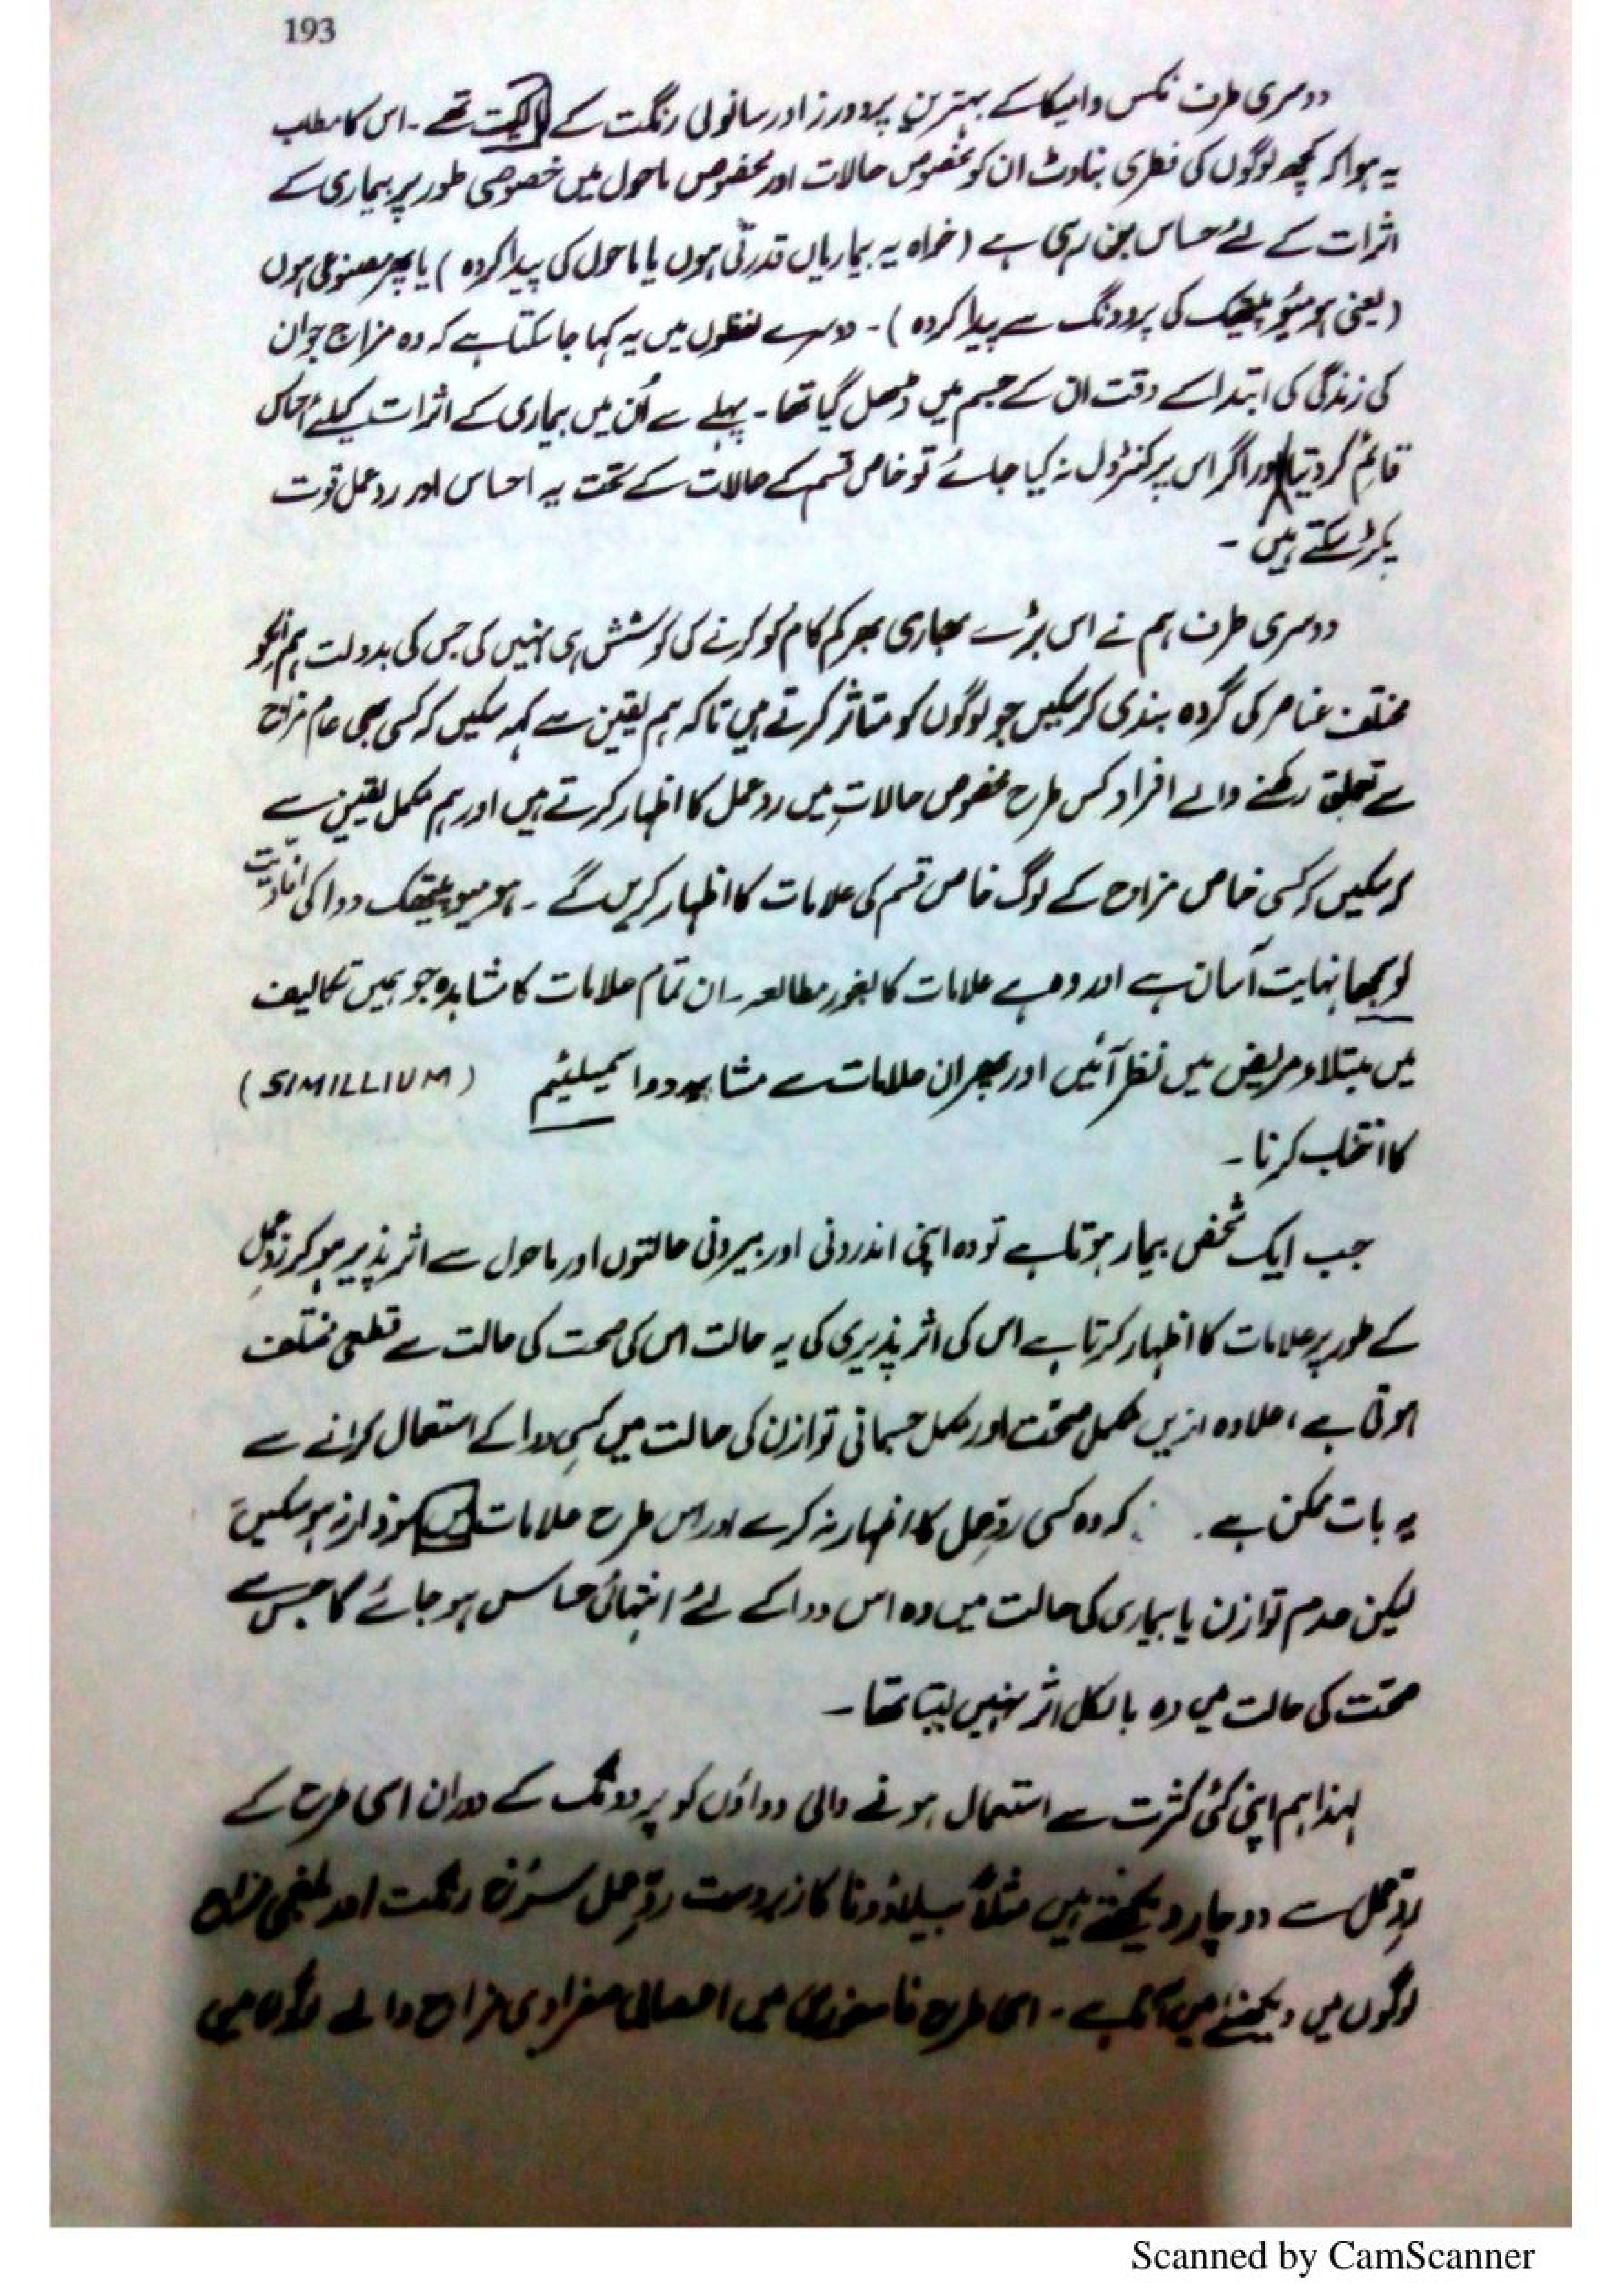 193
دوسری طرف نکس وامیکا کے بہترین پروورز اور سانولی رنگت کے تھے - اس کا مطلب
یہ ہوا کہ کچھ لوگوں کی فطری بناوٹ ان کو مخصوص حالات اور مخصوص ماحول میں خصوصی طور پر بیماری کے
اثرات کے لئے حساس بن رہی ہے ( خواہ یہ بیماریاں قدرتی ہوں یا ماحول کی پیدا کردہ ) یا پھر مصنوعی ہوں
( یعنی ہومیوپیتھک کی پروونگ سے پیدا کردہ ) - دوسرے لفظوں میں یہ کہا جا سکتا ہے کہ وہ مزاج جو ان
کی زندگی کی ابتدا کے وقت ان کے جسم میں ڈھل گیا تھا - پہلے سے اُن میں بیماری کے اثرات کیلئے احساس
قائم کر دیتا اور اگر اس پر کنٹرول نہ کیا جائے تو خاص قسم کے حالات کے تحت یہ احساس اور ردعمل قوت
پکڑ سکتے ہیں -
دوسری طرف ہم نے اس بڑے بھاری بھرکم کام کو کرنے کی کوشش ہی نہیں کی جس کی بدولت ہم انکو
مختلف عناصر کی گروہ بندی کر سکیں جو لوگوں کو متاثر کرتے ہیں تاکہ ہم یقین سے کہہ سکیں کہ کسی بھی عام مزاج
سے تعلق رکھنے والے افراد کس طرح مخصوص حالات میں ردعمل کا اظہار کرتے ہیں اور ہم مکمل یقین سے
کہ سکیں کہ کسی خاص مزاج کے لوگ خاص قسم کی علامات کا اظہار کریں گے - ہومیوپیتھک دوا کی افادیت
نہایت آسان ہے اور وہ ہے علامات کا بغور مطالعہ - ان تمام علامات کا مشاہدہ جو ہمیں تکالیف
میں مبتلاء مریض میں نظر آئیں اور پھر ان علامات سے مشابہہ دوا سیمیلئیم (SIMILLIUM)
کا انتخاب کرنا -
جب ایک شخص بیمار ہوتا ہے تو وہ اپنی اندرونی اور بیرونی حالتوں اور ماحول سے اثر پذیر ہو کر ردِعمل
کے طور پر علامات کا اظہار کرتا ہے اس کی اثر پذیری کی یہ حالت اس کی صحت کی حالت سے قطعی مختلف
ہوتی ہے ، علاوہ ازیں مکمل صحت اور مکمل جسمانی توازن کی حالت میں کسی دوا کے استعمال کرانے سے
یہ بات ممکن ہے کہ وہ کسی ردِعمل کا اظہار نہ کرے اور اس طرح علامات نمودار نہ ہو سکیں
لیکن عدم توازن یا بیماری کی حالت میں وہ اس دوا کے لئے انتہائی حساس ہو جائے گا جس سے
صحت کی حالت میں وہ بالکل اثر نہیں لیتا تھا -
لہٰذا ہم اپنی کئی کثرت سے استعمال ہونے والی دواؤں کو پروونگ کے دوران اسی طرح کے
ردِعمل سے دوچار دیکھتے ہیں مثلاً بیلاڈونا کا زبردست ردِعمل سرخ رنگت اور بلغمی مزاج
لوگوں میں دیکھنے میں آتا ہے - اسی طرح فاسفورس میں اعصابی صفراوی مزاج والے لوگوں میں
Scanned by CamScanner